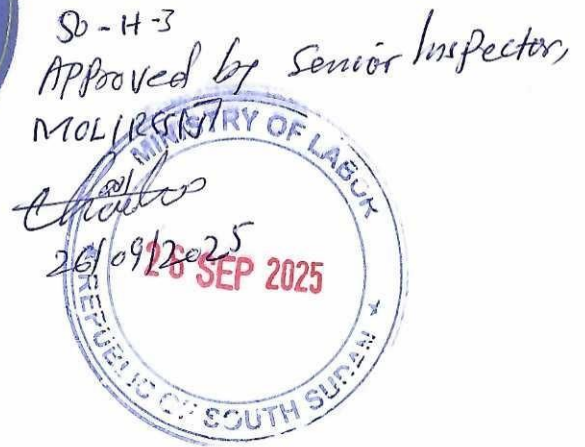 SO-H-3
Approved by Senior Inspector,
MOL/RSS/N
26/09/2025
MINISTRY OF LABOR
26 SEP 2025
REPUBLIC OF SOUTH SUDAN